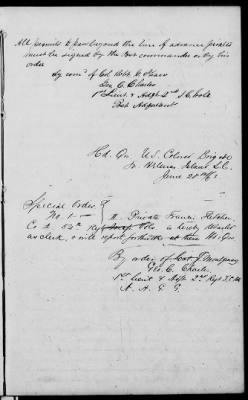 All permits to pass beyond the line of advance pickets
must be signed by the Post commander or by his
order
by com'd of Col
Geo. C. Charles
1st Lieut. & Adjt 2nd S.C. Vols
Post Adjutant
Hd. Qrs U.S. Colored Brigade
St. Helena Island S.C.
June
Special Order
No. 1
II. Private Francis Fletcher
Co A 54th Regt Vols is hereby detailed
as clerk, & will report forthwith at these Hd. Qrs
By order of Col J. Montgomery
Geo. C. Charles
1st Lieut & Adjt 2nd Regt S.C. Vols
A. A. A. G.